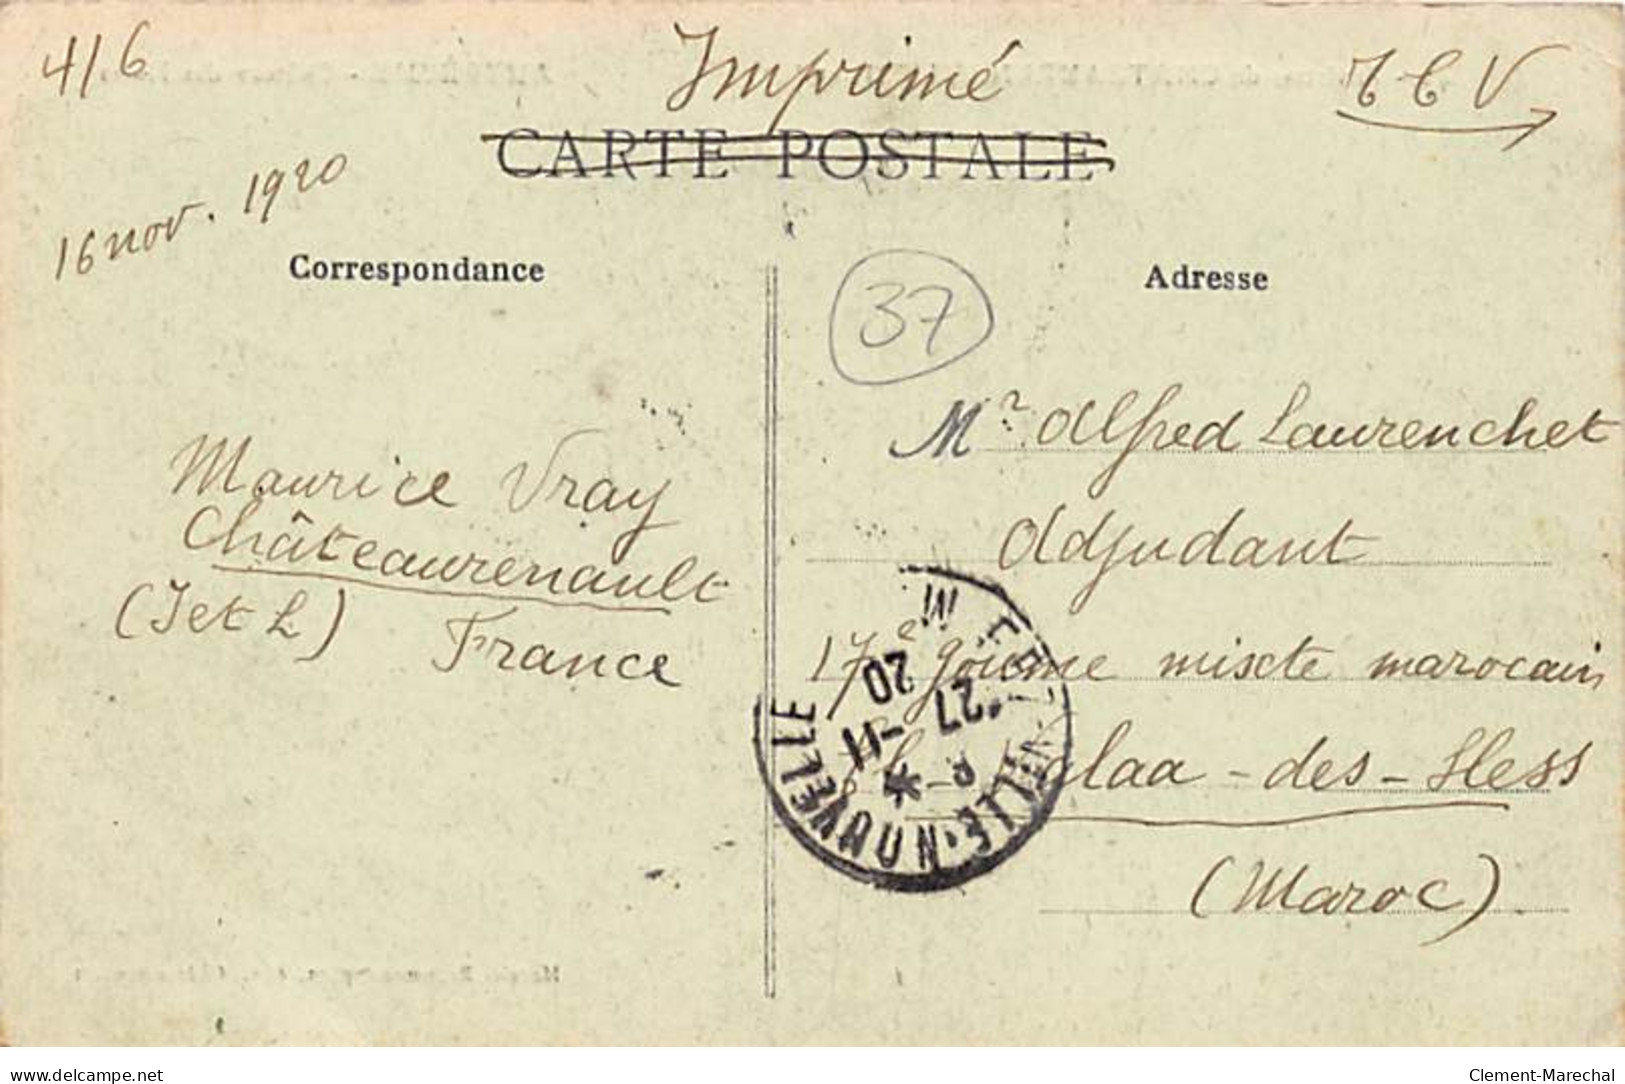 4/6
Imprimé
T C V
CARTE POSTALE
16 nov. 1920
Correspondance
Adresse
37
Mr Alfred Laurenchet
Maurice Vray
Châteaurenault
(I et L) France
Adjudant
17e goume mixte marocain
Kelaa - des - Sless
(Maroc)
VILLE-NOUVELLE
27 -11
20
www.delcampe.net
Clement-Marechal